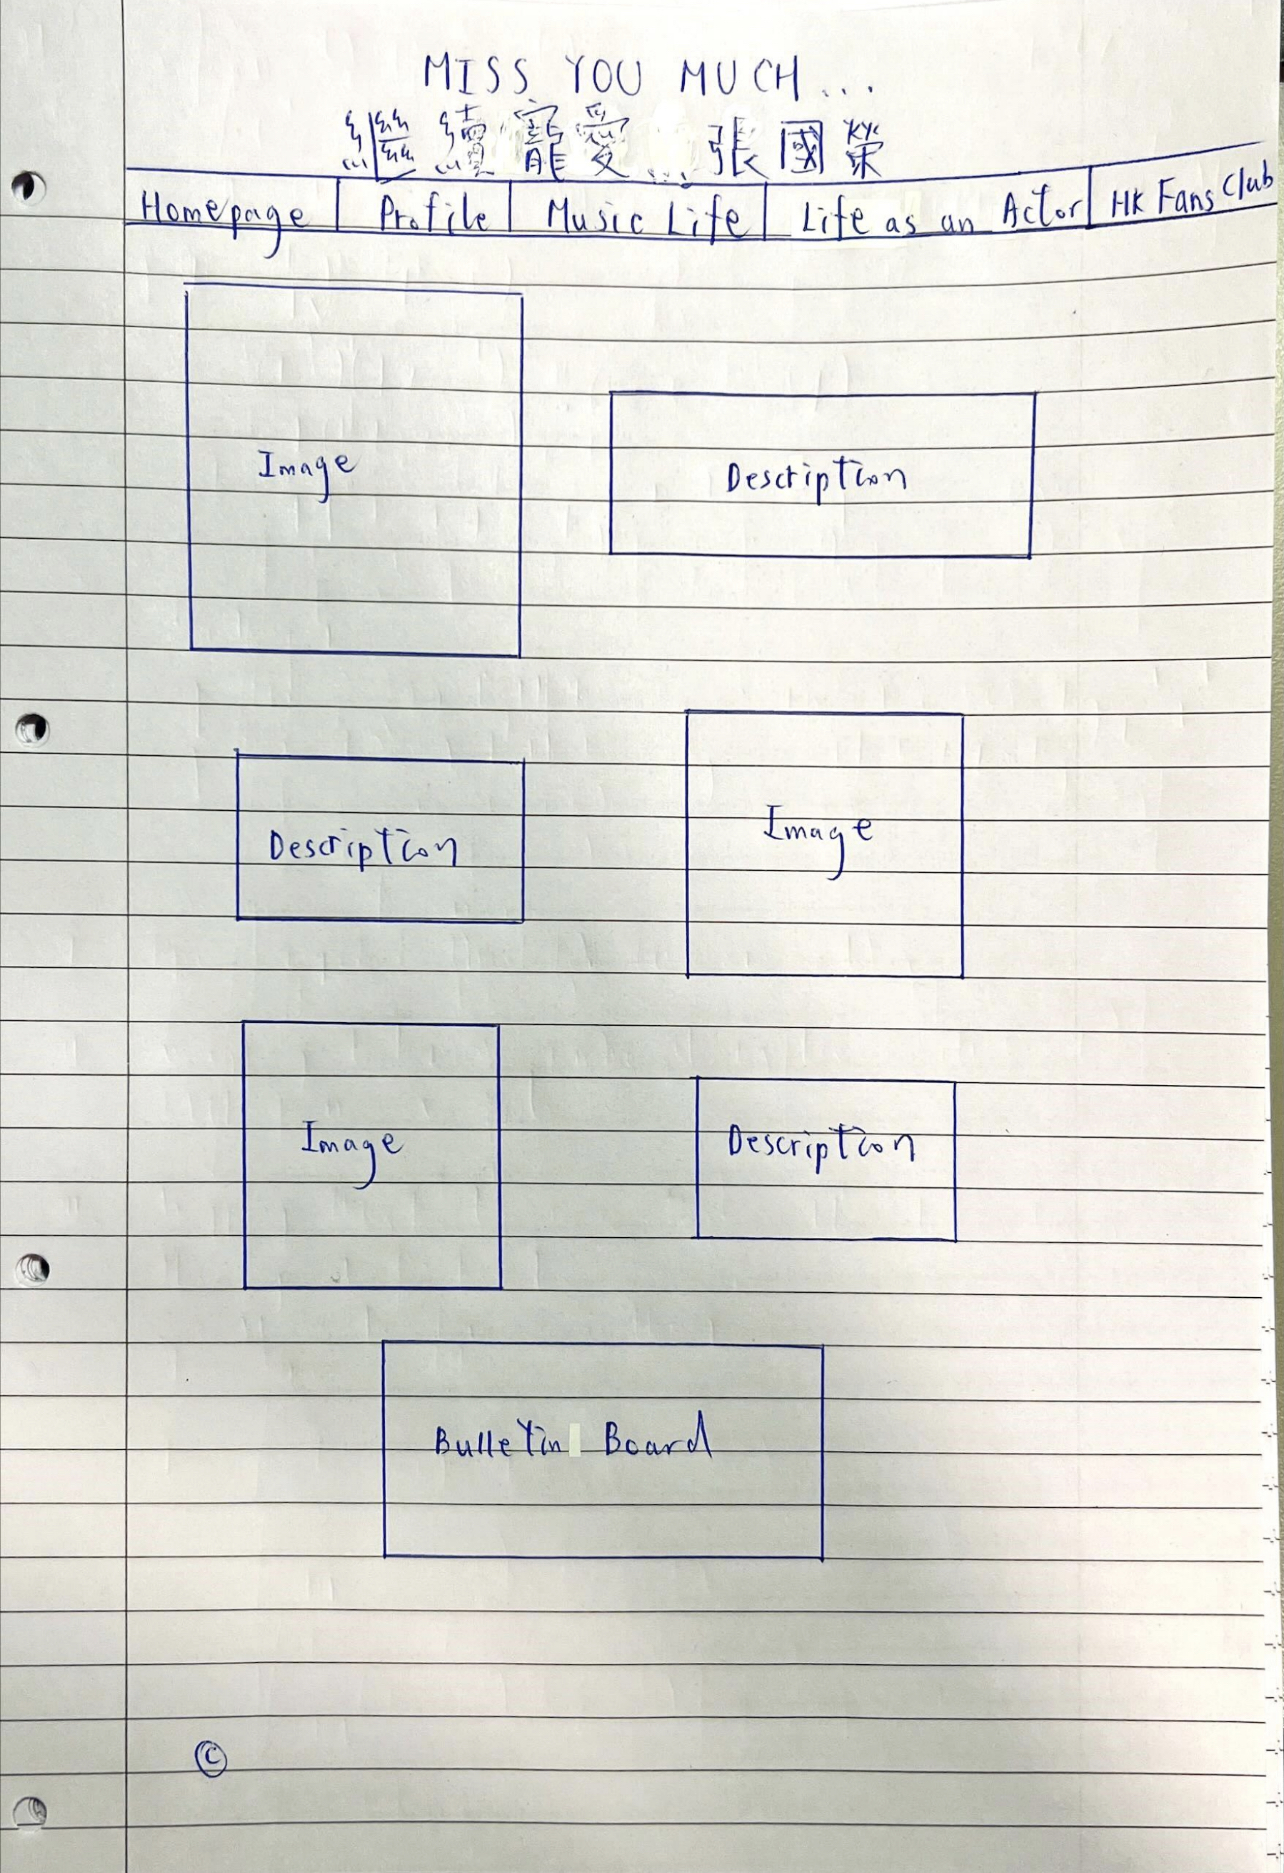 MISS YOU MUCH...
繼續寵愛...張國榮
Homepage Profile Music Life Life as an Actor HK Fans Club
Image
Description
Description
Image
Image
Description
Bulletin Board
©